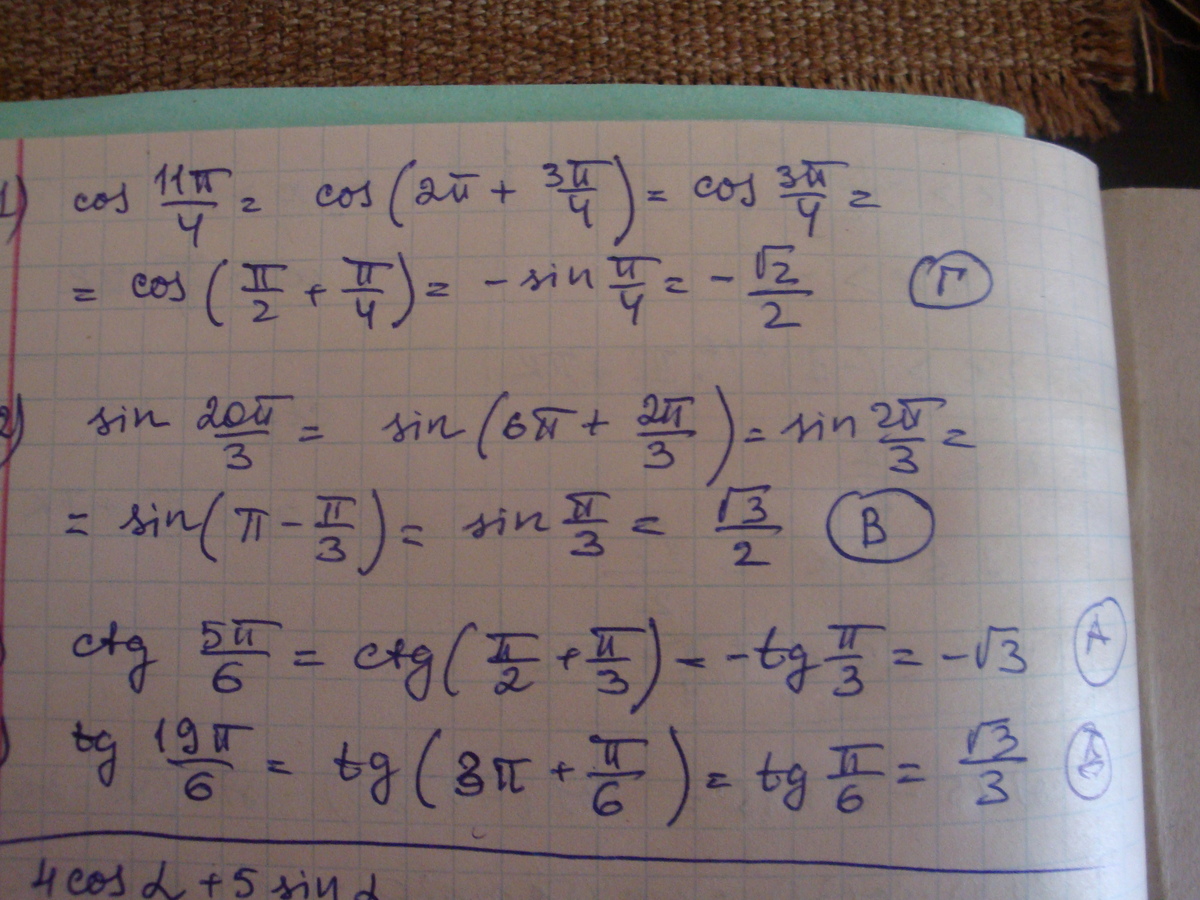 1) cos 11π/4 = cos(2π + 3π/4) = cos 3π/4 =
= cos(π/2 + π/4) = - sin π/4 = - √2/2 Г
2) sin 20π/3 = sin(6π + 2π/3) = sin 2π/3 =
= sin(π - π/3) = sin π/3 = √3/2 В
ctg 5π/6 = ctg(π/2 + π/3) = - tg π/3 = - √3 А
tg 19π/6 = tg(3π + π/6) = tg π/6 = √3/3
4 cos α + 5 sin α